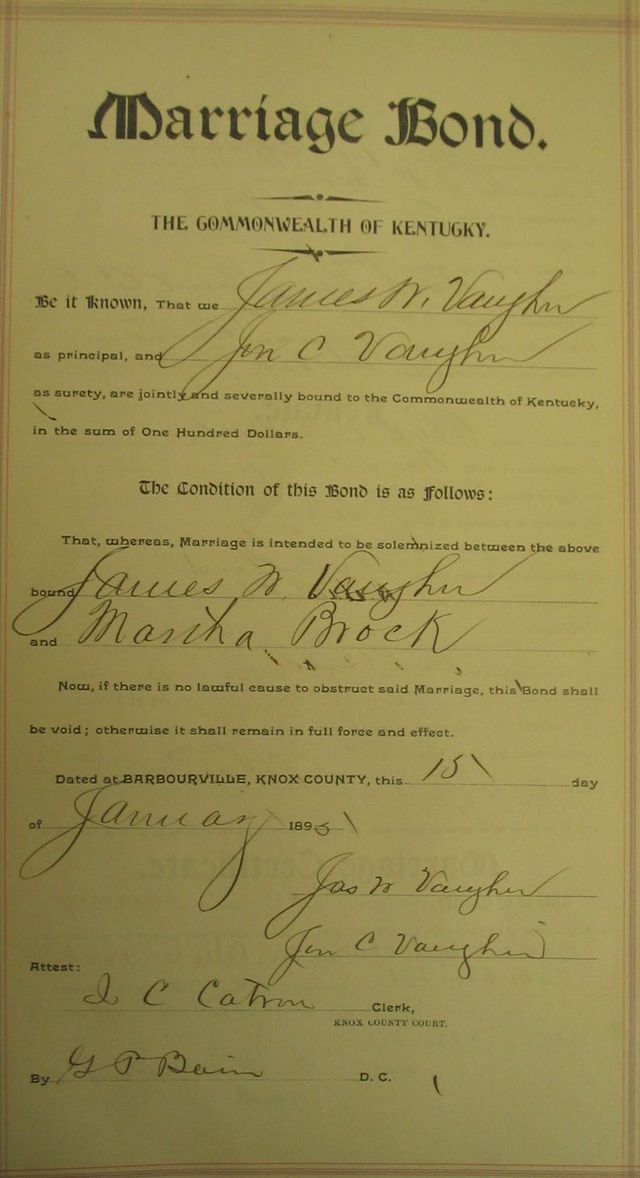 Marriage Bond.
THE COMMONWEALTH OF KENTUCKY.
Be it Known, That we James W. Vaughn
as principal, and Jon C Vaughn
as surety, are jointly and severally bound to the Commonwealth of Kentucky,
in the sum of One Hundred Dollars.
The Condition of this Bond is as Follows:
That, whereas, Marriage is intended to be solemnized between the above
bound James W. Vaughn
and Martha Brock
Now, if there is no lawful cause to obstruct said Marriage, this Bond shall
be void; otherwise it shall remain in full force and effect.
Dated at BARBOURVILLE, KNOX COUNTY, this 15 day
of January 1895
Jas W Vaughn
Jon C Vaughn
Attest:
C Catron Clerk,
KNOX COUNTY COURT.
By G P Bain D. C.